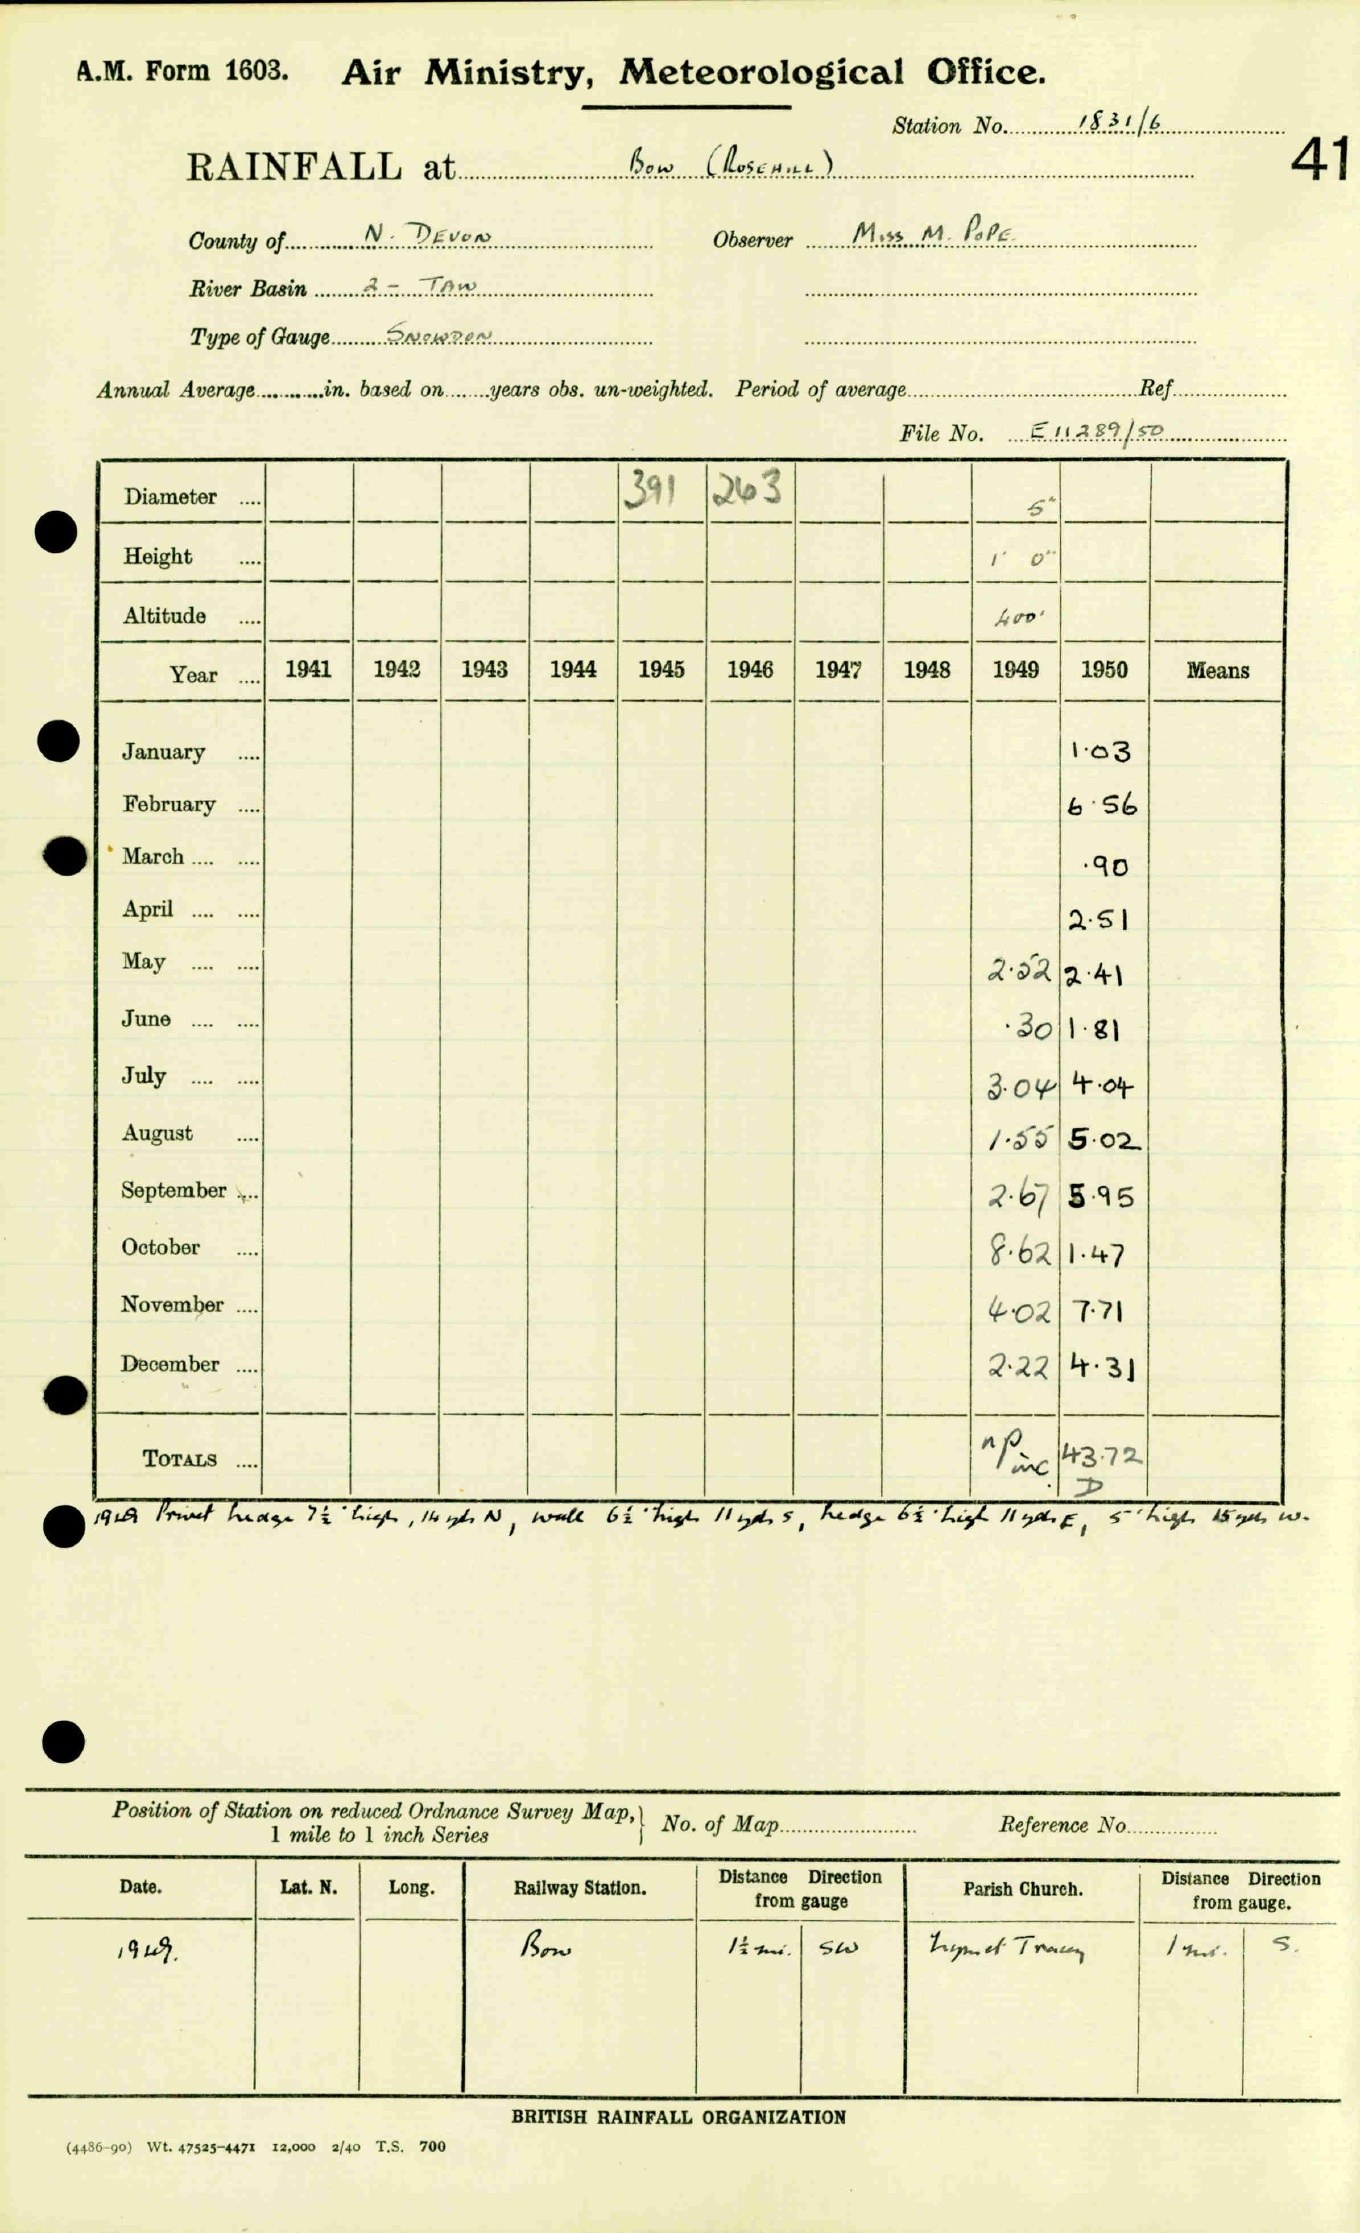 A.M. Form 1603. Air Ministry, Meteorological Office.
Station No. 1831/6
41
RAINFALL at Bow (Rosehill)
County of N. Devon Observer Miss M. Pope.
River Basin 2 - Taw
Type of Gauge Snowdon
Annual Average in. based on years obs. un-weighted. Period of average Ref
File No. E11289/50
Diameter 391 263 5"
Height 1' 0"
Altitude 400'
Year 1941 1942 1943 1944 1945 1946 1947 1948 1949 1950 Means
January 1.03
February 6.56
March .90
April 2.51
May 2.52 2.41
June .30 1.81
July 3.04 4.04
August 1.55 5.02
September 2.67 5.95
October 8.62 1.47
November 4.02 7.71
December 2.22 4.31
Totals np inc 43.72
D
1949 Privet hedge 7½' high, 14 yds N, wall 6½' high 11 yds S, hedge 6½' high 11 yds E, 5' high 15 yds W.
Position of Station on reduced Ordnance Survey Map, 1 mile to 1 inch Series } No. of Map Reference No.
Date. Lat. N. Long. Railway Station. Distance Direction from gauge Parish Church. Distance Direction from gauge.
1949. Bow 1½ mi. SW Nymet Tracey 1 mi. S.
BRITISH RAINFALL ORGANIZATION
(4486-90) Wt. 47525-4471 12,000 2/40 T.S. 700